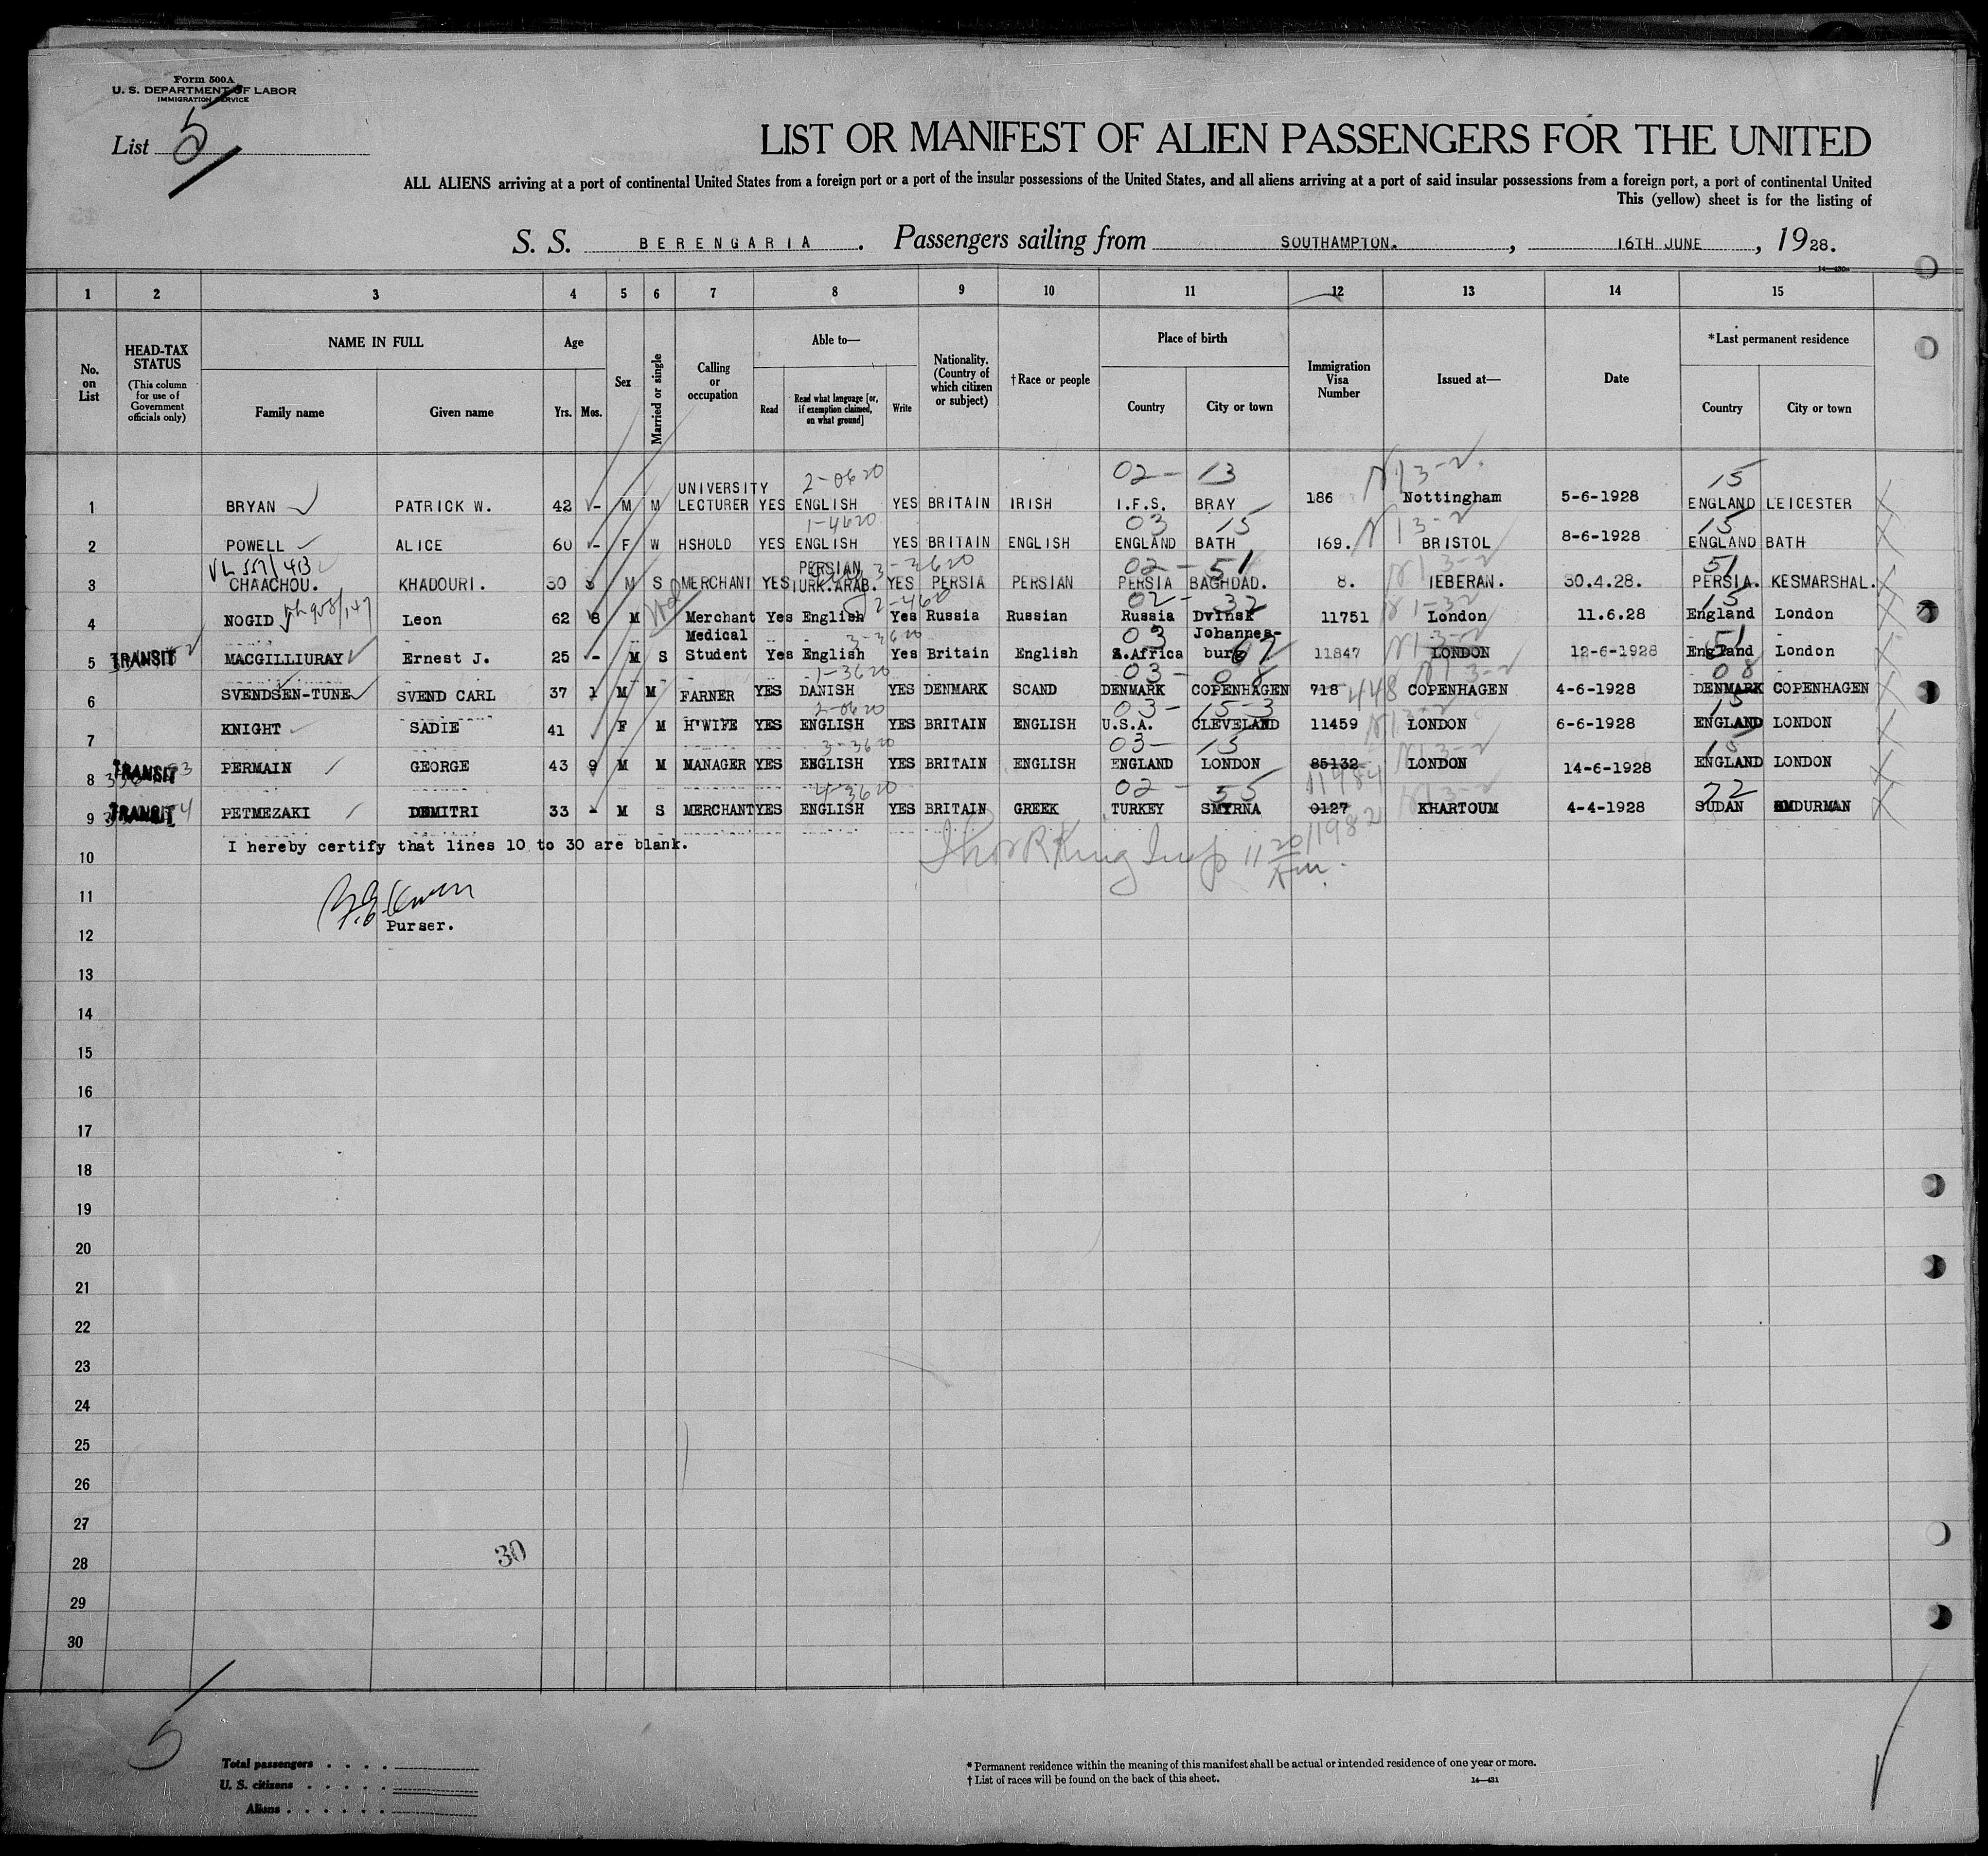 Form 500A
U. S. DEPARTMENT OF LABOR
IMMIGRATION SERVICE
List 5
LIST OR MANIFEST OF ALIEN PASSENGERS FOR THE UNITED
ALL ALIENS arriving at a port of continental United States from a foreign port or a port of the insular possessions of the United States, and all aliens arriving at a port of said insular possessions from a foreign port, a port of continental United
This (yellow) sheet is for the listing of
S. S. BERENGARIA. Passengers sailing from SOUTHAMPTON. , 16TH JUNE , 1928.
1 2 3 4 5 6 7 8 9 10 11 12 13 14 15
No. on List
HEAD-TAX STATUS (This column for use of Government officials only)
NAME IN FULL Family name Given name
Age Yrs. Mos.
Sex
Married or single
Calling or occupation
Able to— Read Read what language [or, if exemption claimed, on what ground] Write
Nationality. (Country of which citizen or subject)
†Race or people
Place of birth Country City or town
Immigration Visa Number
Issued at—
Date
*Last permanent residence Country City or town
2-0620 02- 13 15
1 BRYAN PATRICK W. 42 - M M UNIVERSITY LECTURER YES ENGLISH YES BRITAIN IRISH I.F.S. BRAY 186 Nottingham 5-6-1928 ENGLAND LEICESTER
1-4620 03 15 15
2 POWELL ALICE 60 - F W HSHOLD YES ENGLISH YES BRITAIN ENGLISH ENGLAND BATH 169. BRISTOL 8-6-1928 ENGLAND BATH
3-3620 02- 51 51
3 CHAACHOU. KHADOURI. 30 M S MERCHANT YES PERSIAN TURK.ARAB. YES PERSIA PERSIAN PERSIA BAGHDAD. 8. TEBERAN. 30.4.28. PERSIA. KESMARSHAL.
2-460 02- 32 15
4 NOGID Leon 62 8 M Merchant Yes English Yes Russia Russian Russia Dvinsk 11751 London 11.6.28 England London
3-3620 03 67 51
5 TRANSIT MACGILLIURAY Ernest J. 25 - M S Medical Student Yes English Yes Britain English S.Africa Johannes-burg 11847 LONDON 12-6-1928 England London
1-3620 03- 08 08
6 SVENDSEN-TUNE SVEND CARL 37 1 M M FARNER YES DANISH YES DENMARK SCAND DENMARK COPENHAGEN 718 448 COPENHAGEN 4-6-1928 DENMARK COPENHAGEN
2-0620 03- 15-3 15
7 KNIGHT SADIE 41 F M H'WIFE YES ENGLISH YES BRITAIN ENGLISH U.S.A. CLEVELAND 11459 LONDON 6-6-1928 ENGLAND LONDON
3-3620 03- 15 15
8 TRANSIT PERMAIN GEORGE 43 9 M M MANAGER YES ENGLISH YES BRITAIN ENGLISH ENGLAND LONDON 85132 LONDON 14-6-1928 ENGLAND LONDON
4-3620 02- 55 72
9 TRANSIT PETMEZAKI DEMITRI 33 - M S MERCHANT YES ENGLISH YES BRITAIN GREEK TURKEY SMYRNA 0127 KHARTOUM 4-4-1928 SUDAN OMDURMAN
10 I hereby certify that lines 10 to 30 are blank.
11
Purser.
12
13
14
15
16
17
18
19
20
21
22
23
24
25
26
27
30
28
29
30
5
Total passengers
U. S. citizens
Aliens
* Permanent residence within the meaning of this manifest shall be actual or intended residence of one year or more.
† List of races will be found on the back of this sheet.
14—431